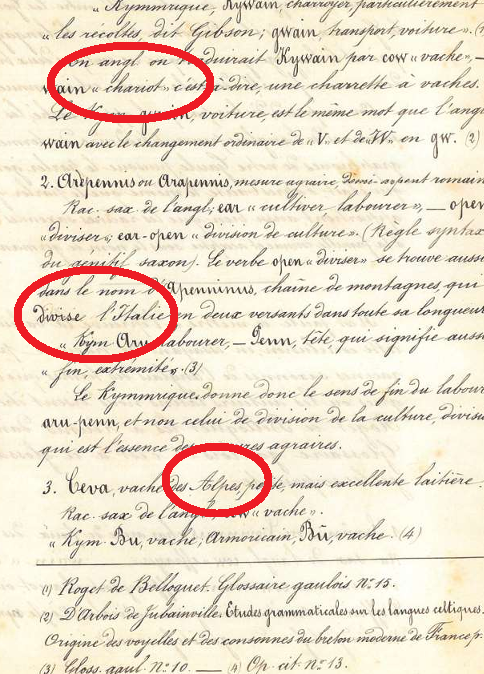 Kymmrique, Kywain, charroyer, particulièrement
« les récoltes, dit Gibson; gwain, transport, voiture ».
en angl. on traduirait Kywain par cow « vache », —
wain « chariot » c'est à dire, une charrette à vaches.
Le Kym. gwain, voiture, est le même mot que l'angl
wain avec le changement ordinaire de « V » et de « W » en gw. (2)
2. Arepennis ou Arapennis, mesure agraire demi-arpent romain
Rac. sax. de l'angl, ear « cultiver, labourer », — open
« diviser »; ear-open « division de culture ». (Règle syntax
du génitif saxon). Le verbe open « diviser » se trouve aussi
dans le nom d'Apenninus, chaîne de montagnes, qui
divise l'Italie en deux versants dans toute sa longueur
« Kym Aru labourer, — Penn, tête, qui signifie auss
« fin, extrémité ». (3)
Le Kymmrique donne donc le sens de fin du labour
aru-penn, et non celui de division de la culture, divisi
qui est l'essence des mesures agraires.
3. Ceva, vache des Alpes, petite, mais excellente laitière.
Rac. sax de l'angl, cow « vache ».
« Kym. Bu, vache; Armoricain, Bū, vache. (4)
(1) Roget de Belloguet. Glossaire gaulois N° 15.
(2) D'Arbois de Jubainville. Etudes grammaticales sur les langues celtiques.
Origine des voyelles et des consonnes du breton moderne de France p.
(3) Gloss. gaul. N° 10. — (4) Op. cit. N° 13.